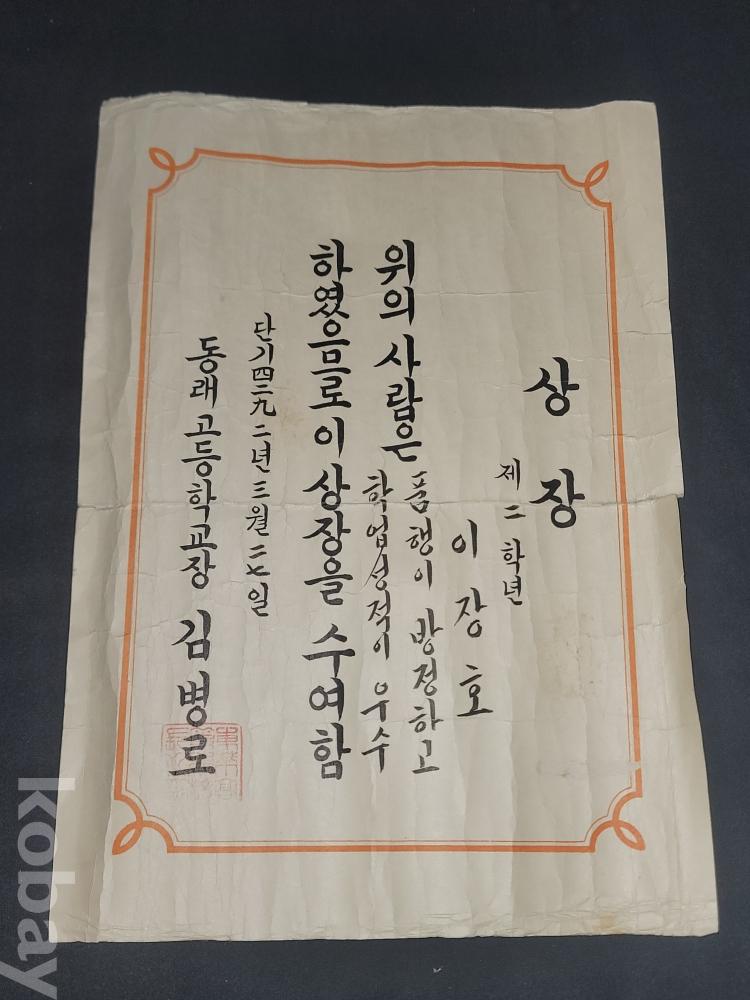 상장
제二학년
이장호
위의 사람은 품행이 방정하고
학업성적이 우수
하였으므로 이 상장을 수여함
단기四二九二년三월二七일
동래고등학교장 김병로
kobay